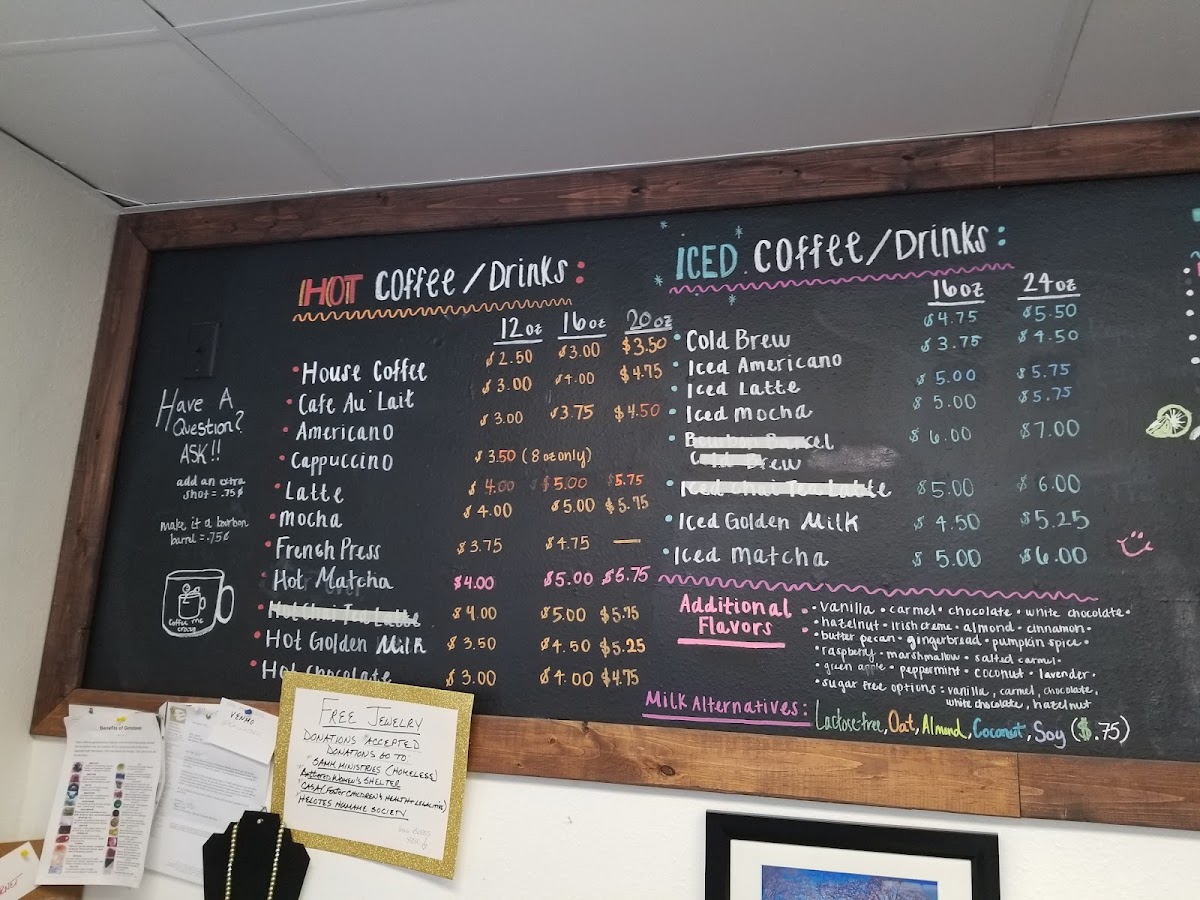 HOT Coffee/Drinks:
12 oz 16 oz 20 oz
House Coffee $2.50 $3.00 $3.50
Cafe Au Lait $3.00 $4.00 $4.75
Americano $3.00 $3.75 $4.50
Cappuccino $3.50 (8 oz only)
Latte $4.00 $5.00 $5.75
Mocha $4.00 $5.00 $5.75
French Press $3.75 $4.75 —
Hot Matcha $4.00 $5.00 $5.75
Hot Chai Tea Latte $4.00 $5.00 $5.75
Hot Golden Milk $3.50 $4.50 $5.25
Hot Chocolate $3.00 $4.00 $4.75
Have A
Question?
ASK!!
add an extra
shot = .75¢
make it a bourbon
barrel = .75¢
coffee me
crazy
ICED Coffee/Drinks:
16 oz 24 oz
Cold Brew $4.75 $5.50
Iced Americano $3.75 $4.50
Iced Latte $5.00 $5.75
Iced Mocha $5.00 $5.75
Bourbon Barrel $6.00 $7.00
Cold Brew
Iced Chai Tea Latte $5.00 $6.00
Iced Golden Milk $4.50 $5.25
Iced Matcha $5.00 $6.00
Additional
Flavors :
• vanilla • carmel • chocolate • white chocolate •
• hazelnut • irish creme • almond • cinnamon •
• butter pecan • gingerbread • pumpkin spice •
• raspberry • marshmallow • salted carmel •
• green apple • peppermint • coconut • lavender •
• sugar free options : vanilla, carmel, chocolate,
white chocolate, hazelnut
Milk Alternatives: Lactose-free, Oat, Almond, Coconut, Soy ($.75)
Benefits of Gemstone
VENMO
FREE JEWELRY
DONATIONS ACCEPTED
DONATIONS GO TO:
SAMM MINISTRIES (HOMELESS)
WOMEN'S SHELTER
CASA (FOSTER CHILDREN
HELOTES HUMANE SOCIETY